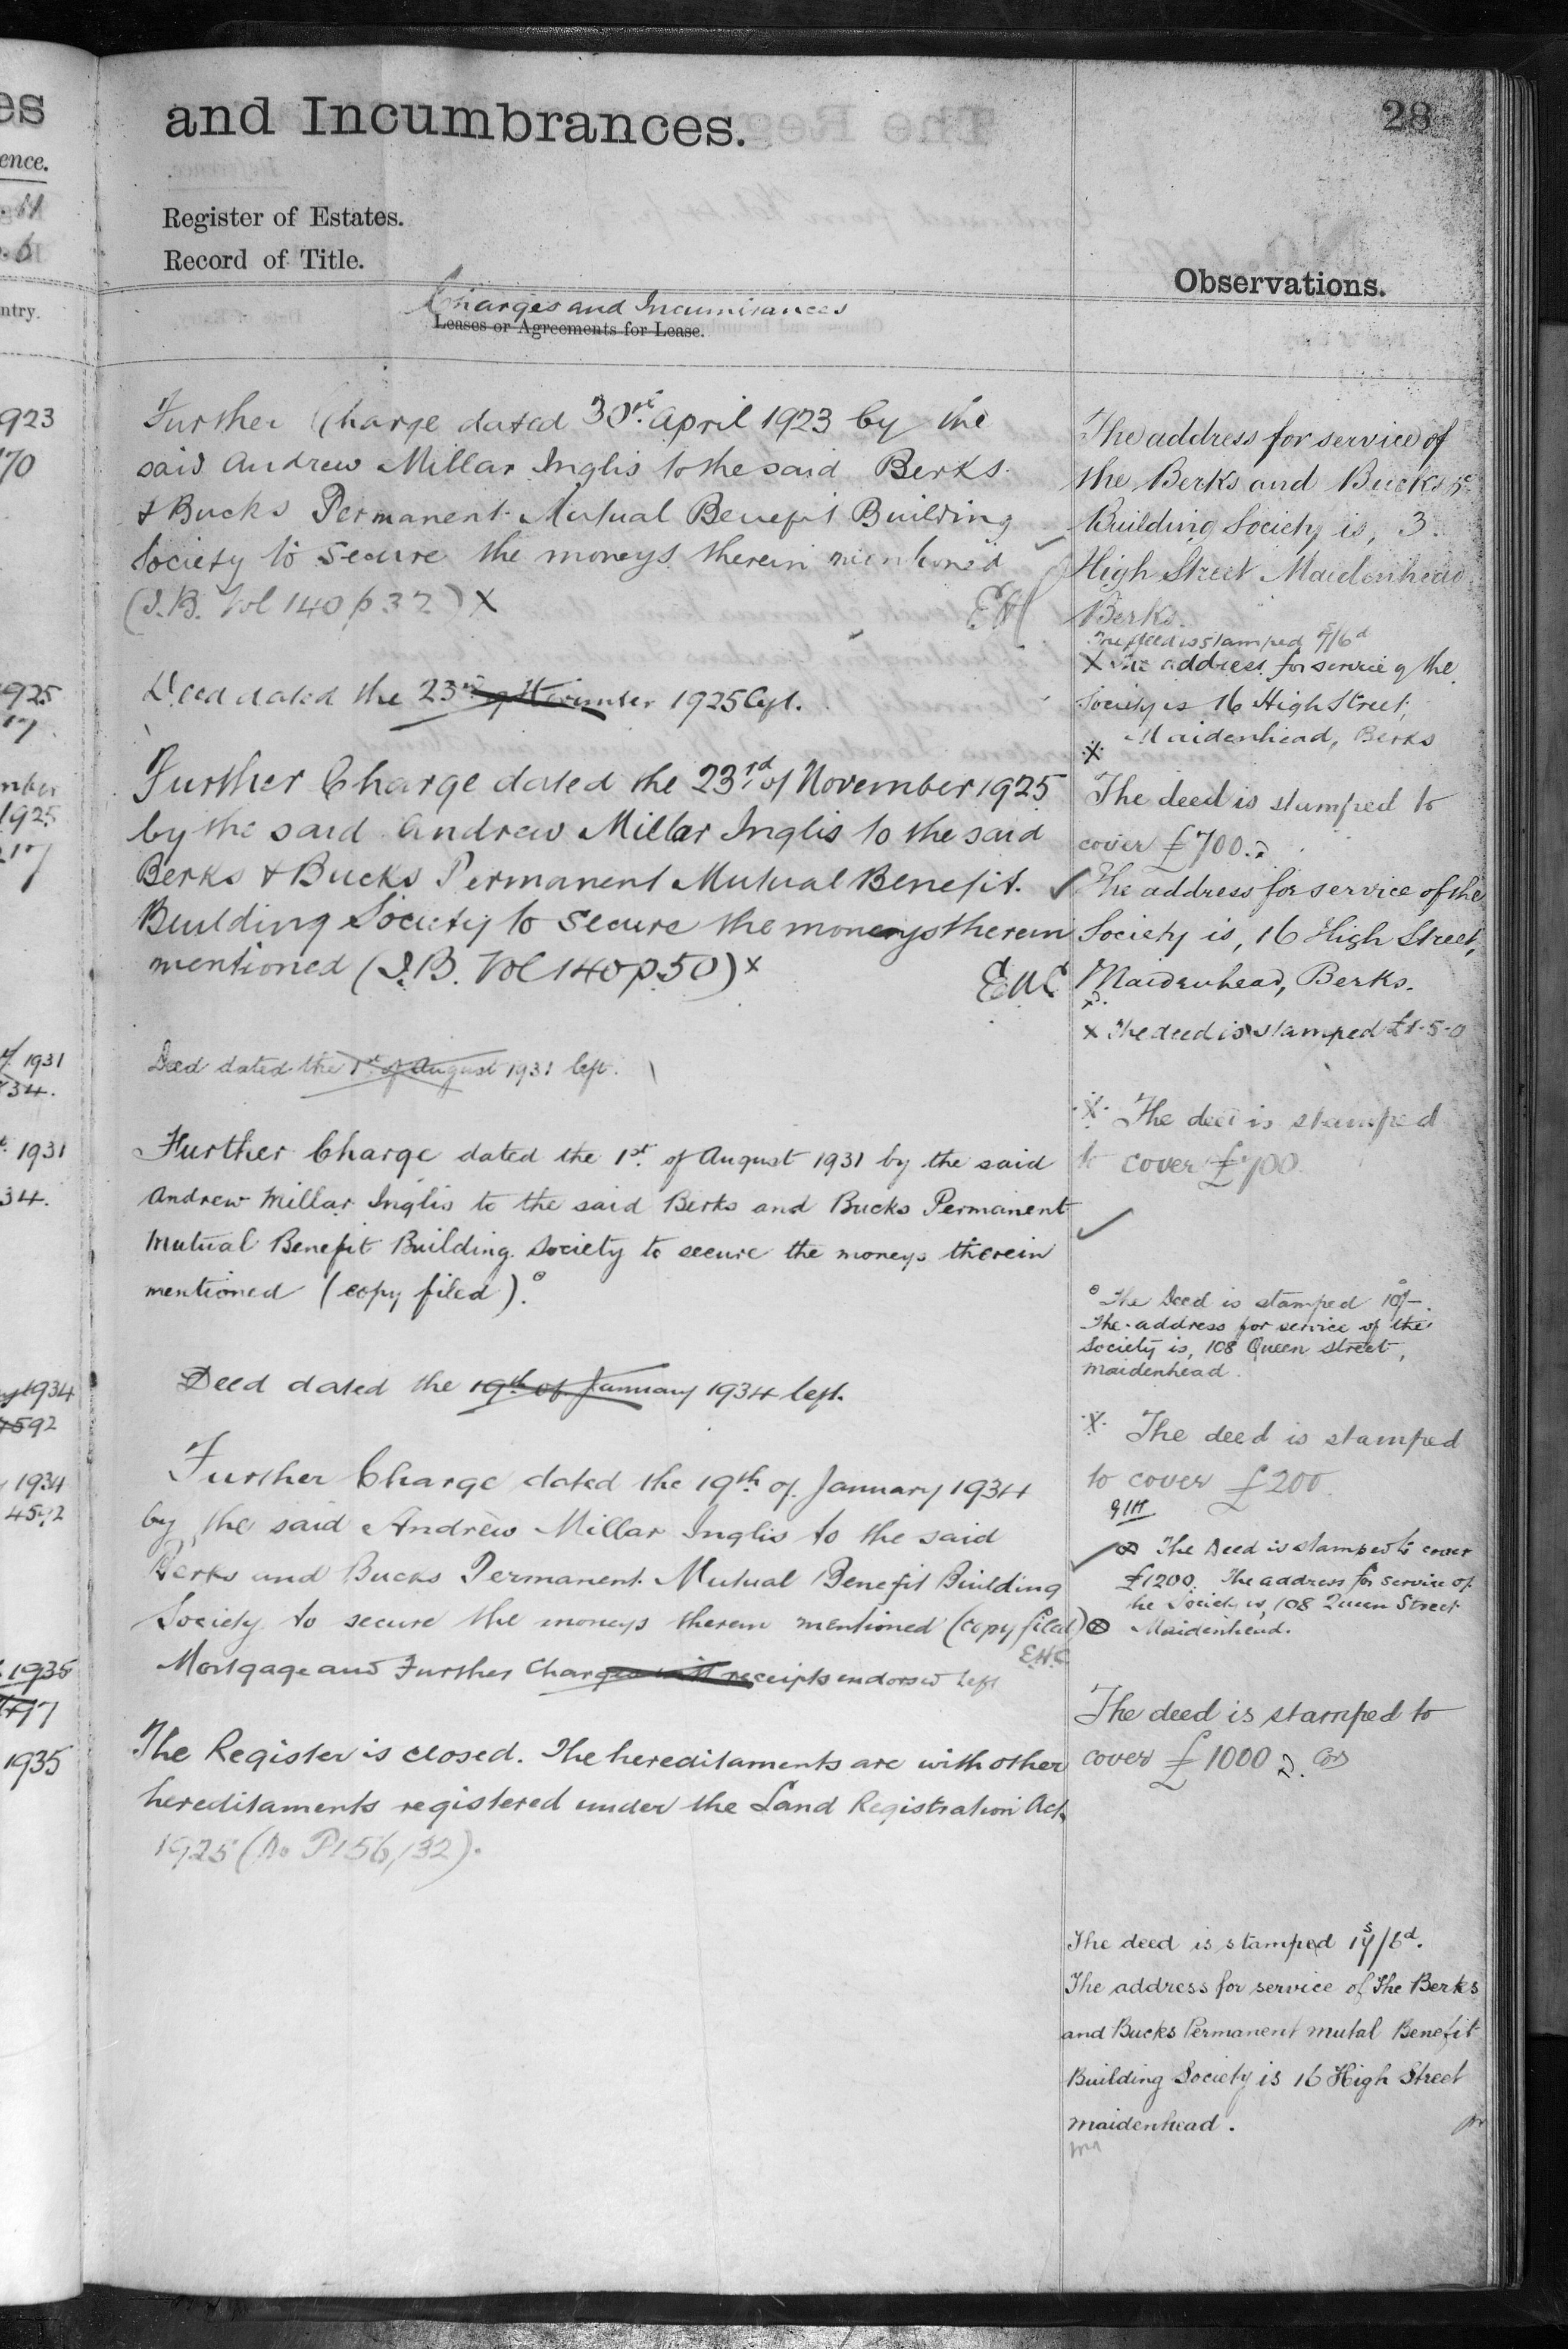 es
ence.
ntry.
923
70
1925
17
1925
1931
34.
1931
34.
1934
4592
1934
4592
1935
1935
and Incumbrances.
28
Register of Estates.
Record of Title.
Observations.
Charges and Incumbrances
Leases or Agreements for Lease.
Further Charge dated 30th April 1923 by the
said Andrew Millar Inglis to the said Berks
& Bucks Permanent Mutual Benefit Building
Society to secure the moneys therein mentioned
(I.B. Vol 140 p 32) X
Deed dated the 23rd of November 1925 left.
Further Charge dated the 23rd of November 1925
by the said Andrew Millar Inglis to the said
Berks & Bucks Permanent Mutual Benefit
Building Society to secure the moneys therein
mentioned (I.B. Vol 140 p. 50) x
EHC
Deed dated the 1st of August 1931 left.
Further Charge dated the 1st of August 1931 by the said
Andrew Millar Inglis to the said Berks and Bucks Permanent
Mutual Benefit Building Society to secure the moneys therein
mentioned (copy filed).
Deed dated the 19th of January 1934 left.
Further Charge dated the 19th of January 1934
by the said Andrew Millar Inglis to the said
Berks and Bucks Permanent Mutual Benefit Building
Society to secure the moneys therein mentioned (copy filed)
EHC
Mortgage and Further Charges with receipts endorsed left
The Register is closed. The hereditaments are with other
hereditaments registered under the Land Registration Act
1925 (No P156,132).
The address for service of
the Berks and Bucks &c
Building Society is, 3
High Street Maidenhead
Berks.
The deed is stamped 7s/6d
X The address for service of the
Society is 16 High Street,
Maidenhead, Berks
X
The deed is stamped to
cover £700.
The address for service of the
Society is, 16 High Street,
Maidenhead, Berks.
x The deed is stamped £1-5-0
X The deed is stamped
to cover £700
The Deed is stamped 10s/-.
The address for service of the
Society is, 108 Queen Street,
Maidenhead.
X The deed is stamped
to cover £200.
The Deed is stamped to cover
£1200. The address for service of
the Society is, 108 Queen Street
Maidenhead.
The deed is stamped to
cover £1000
The deed is stamped 17s/6d.
The address for service of the Berks
and Bucks Permanent mutal Benefit
Building Society is 16 High Street
Maidenhead.